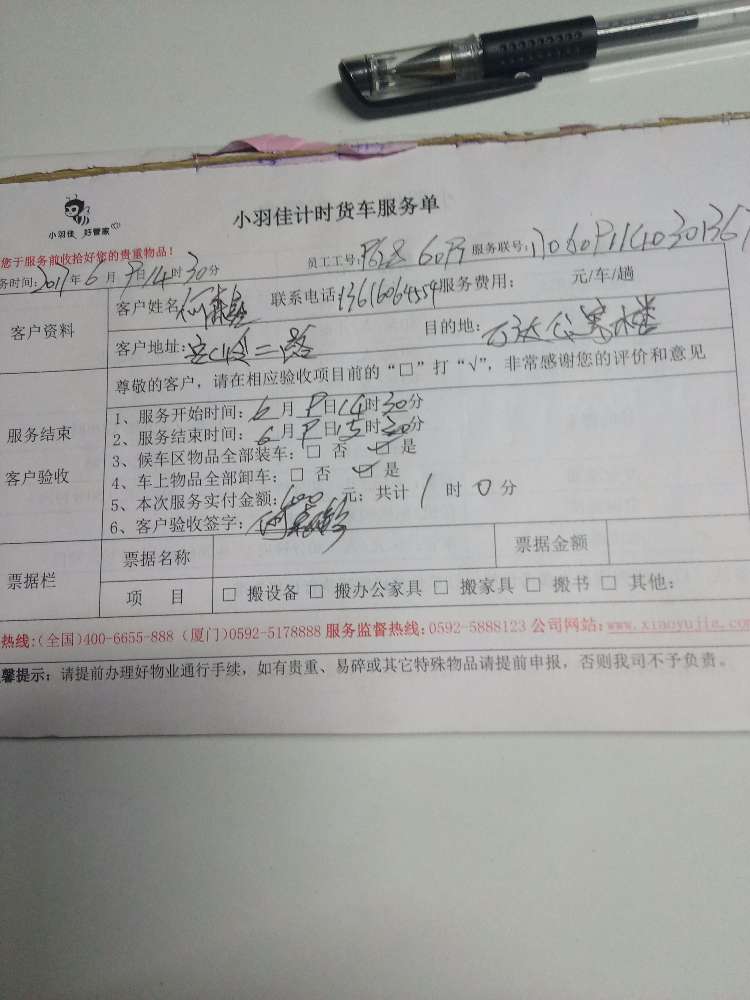 小羽佳 好管家
小羽佳计时货车服务单
您于服务前收拾好您的贵重物品！
员工工号: 服务联号:
务时间:2017年6月 日14时30分
客户资料
客户姓名 联系电话:13616064554服务费用： 元/车/趟
客户地址: 二路 目的地: 万达公寓楼
尊敬的客户，请在相应验收项目前的“□”打“√”，非常感谢您的评价和意见
服务结束
客户验收
1、服务开始时间：6月 日14时30分
2、服务结束时间：6月 日15时30分
3、候车区物品全部装车：□ 否 ☑ 是
4、车上物品全部卸车：□ 否 ☑ 是
5、本次服务实付金额: 100 元：共计 1 时 0 分
6、客户验收签字：
票据栏
票据名称 票据金额
项 目 □ 搬设备 □ 搬办公家具 □ 搬家具 □ 搬书 □ 其他：
热线:(全国)400-6655-888 (厦门)0592-5178888 服务监督热线: 0592-5888123 公司网站: www.xiaoyujia.com
馨提示：请提前办理好物业通行手续，如有贵重、易碎或其它特殊物品请提前申报，否则我司不予负责。